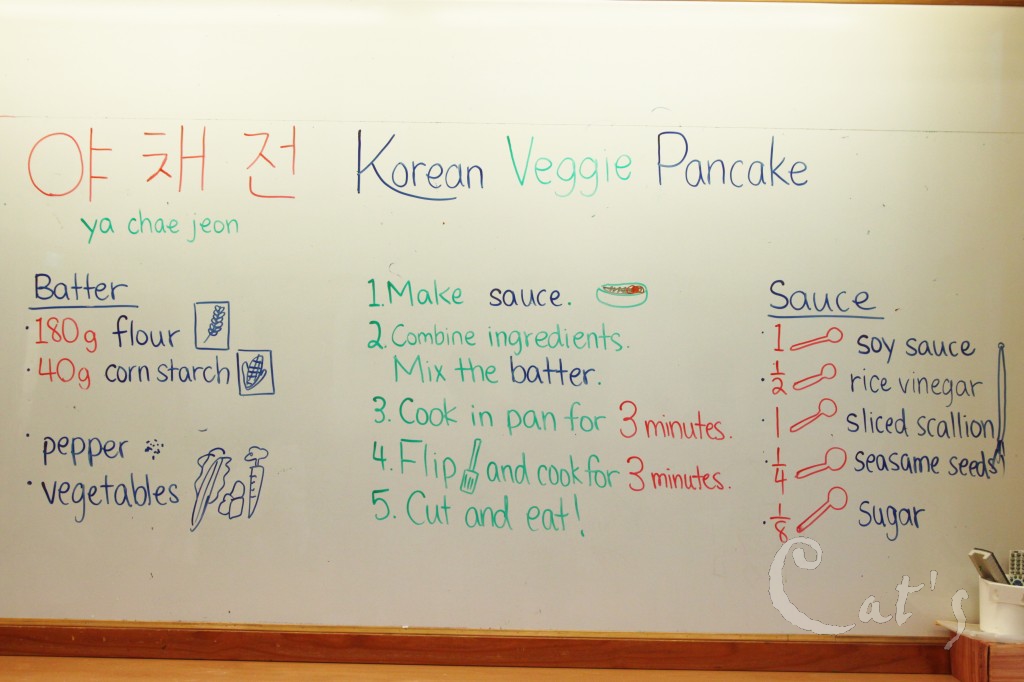 야채전 Korean Veggie Pancake
ya chae jeon
Batter
· 180g flour
· 40g corn starch
· pepper
· vegetables
1. Make sauce.
2. Combine ingredients.
Mix the batter.
3. Cook in pan for 3 minutes.
4. Flip and cook for 3 minutes.
5. Cut and eat!
Sauce
· 1 soy sauce
· 1/2 rice vinegar
· 1 sliced scallion
· 1/4 seasame seeds
· 1/8 sugar
Cat's